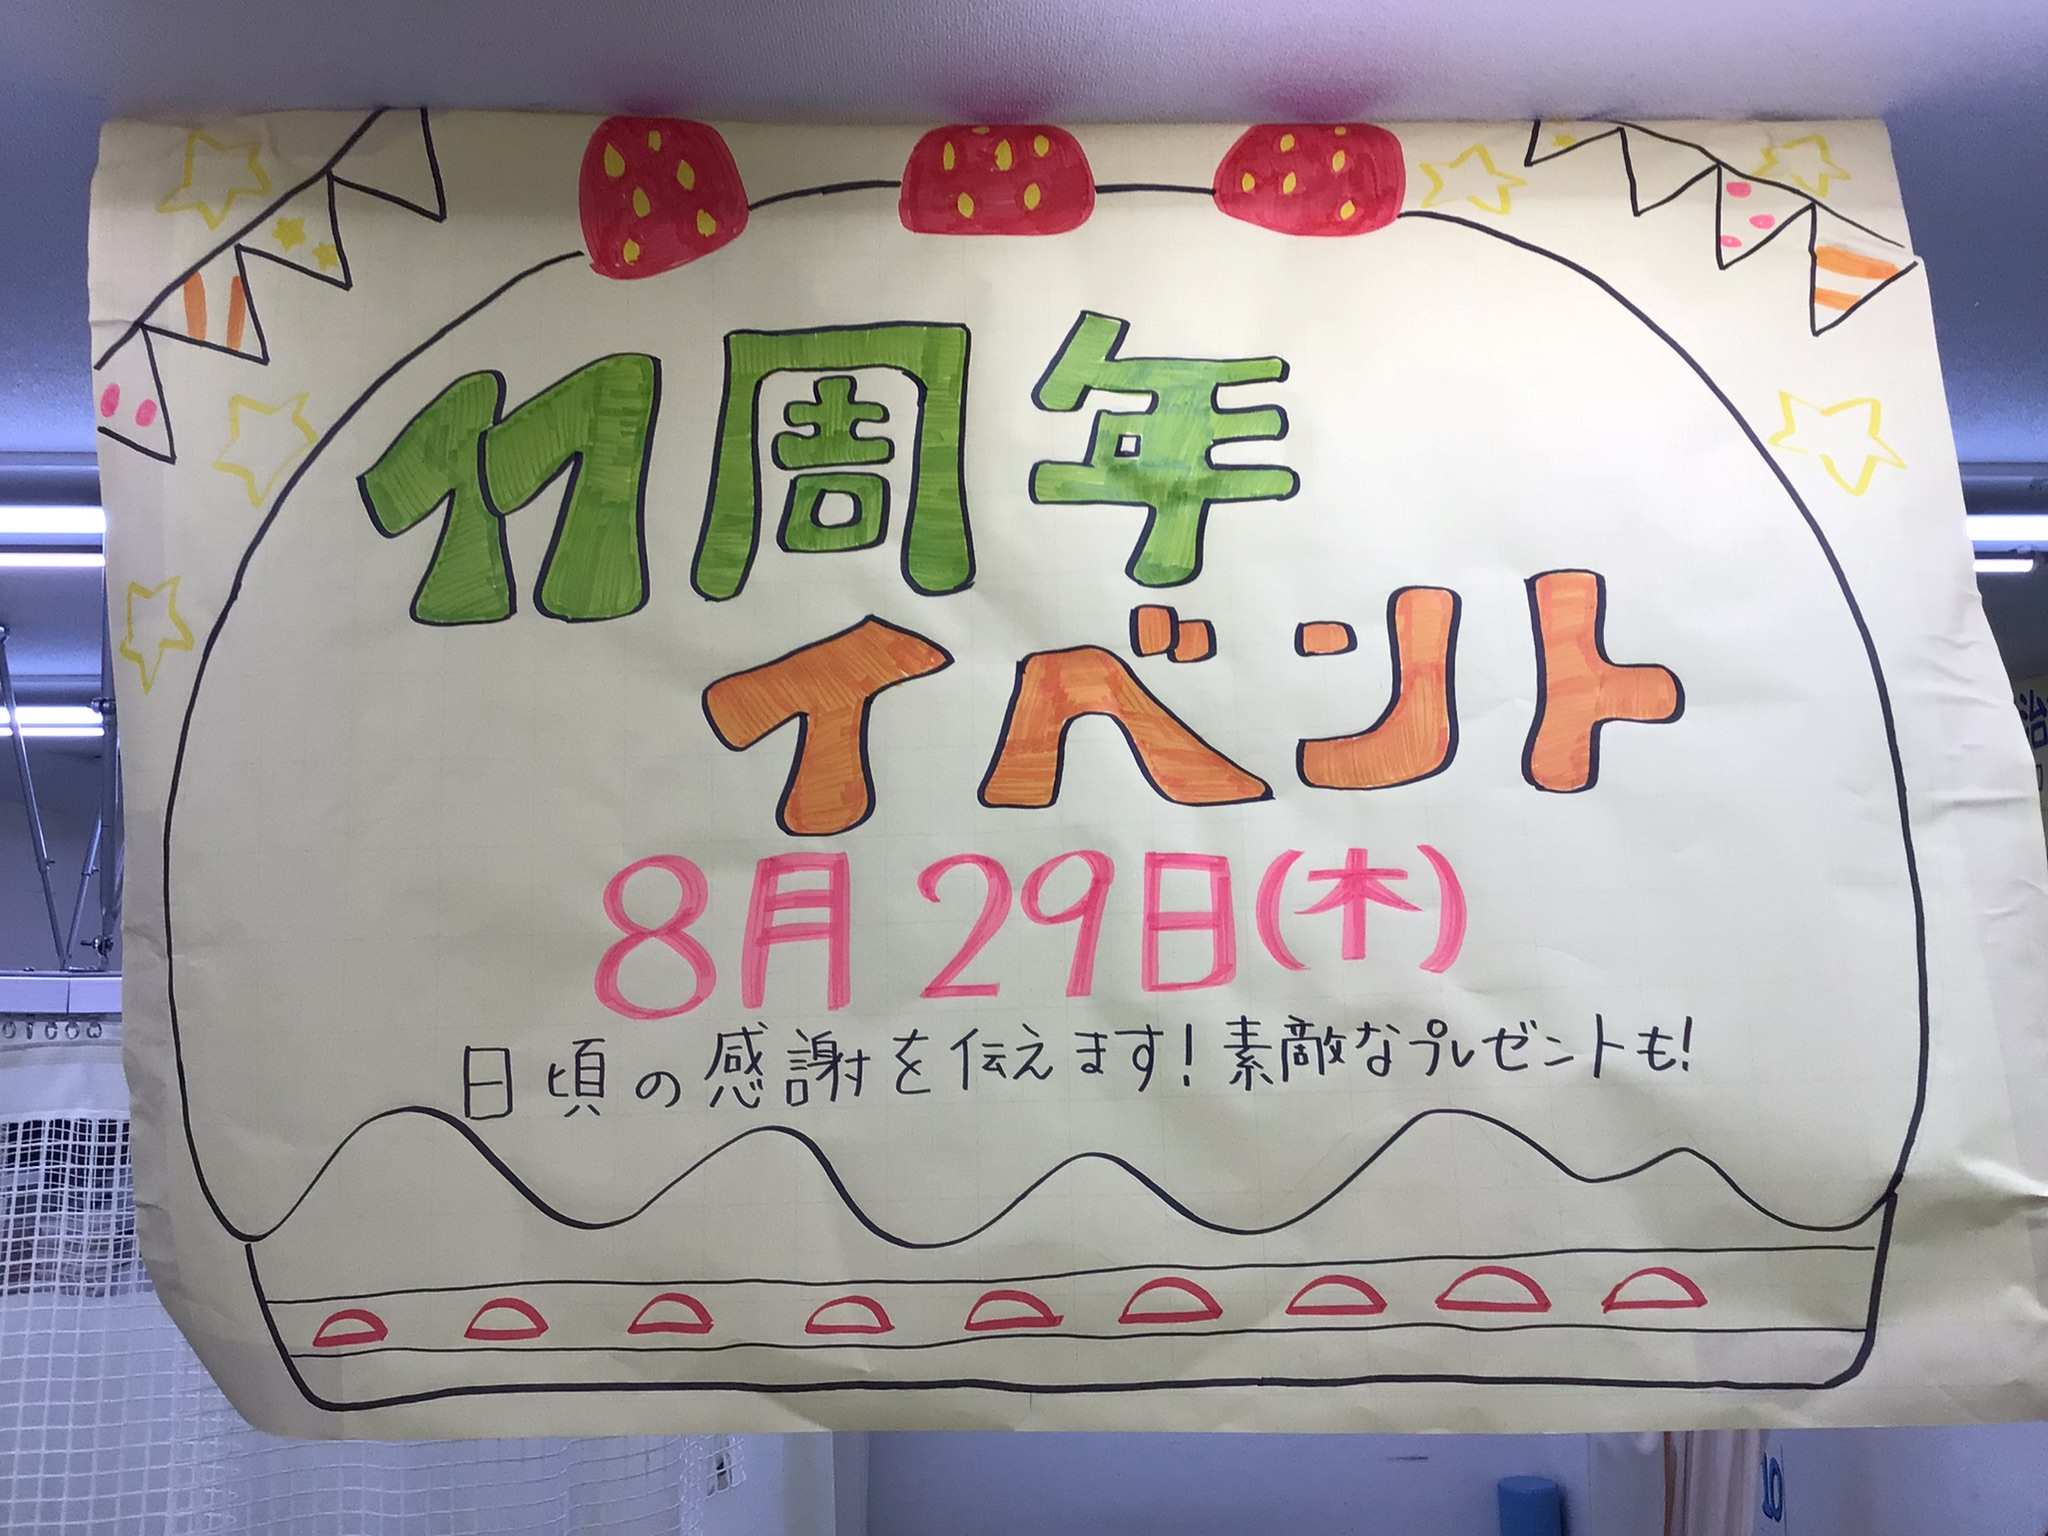 11周年
イベント
8月29日(木)
日頃の感謝を伝えます!素敵なプレゼントも!
治
10